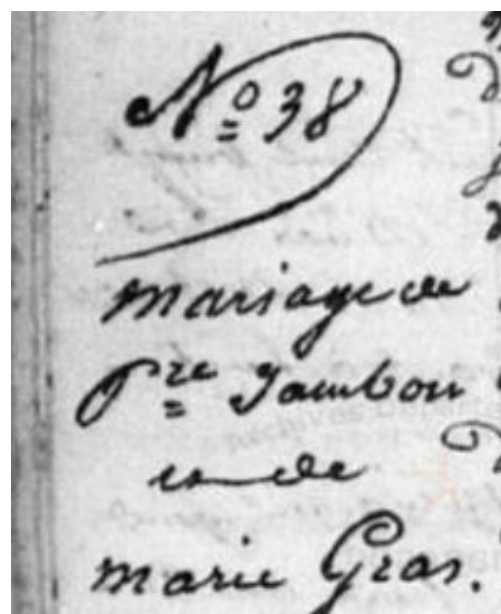 No 38
mariage de
Pre Jambon
et de
marie Gras.